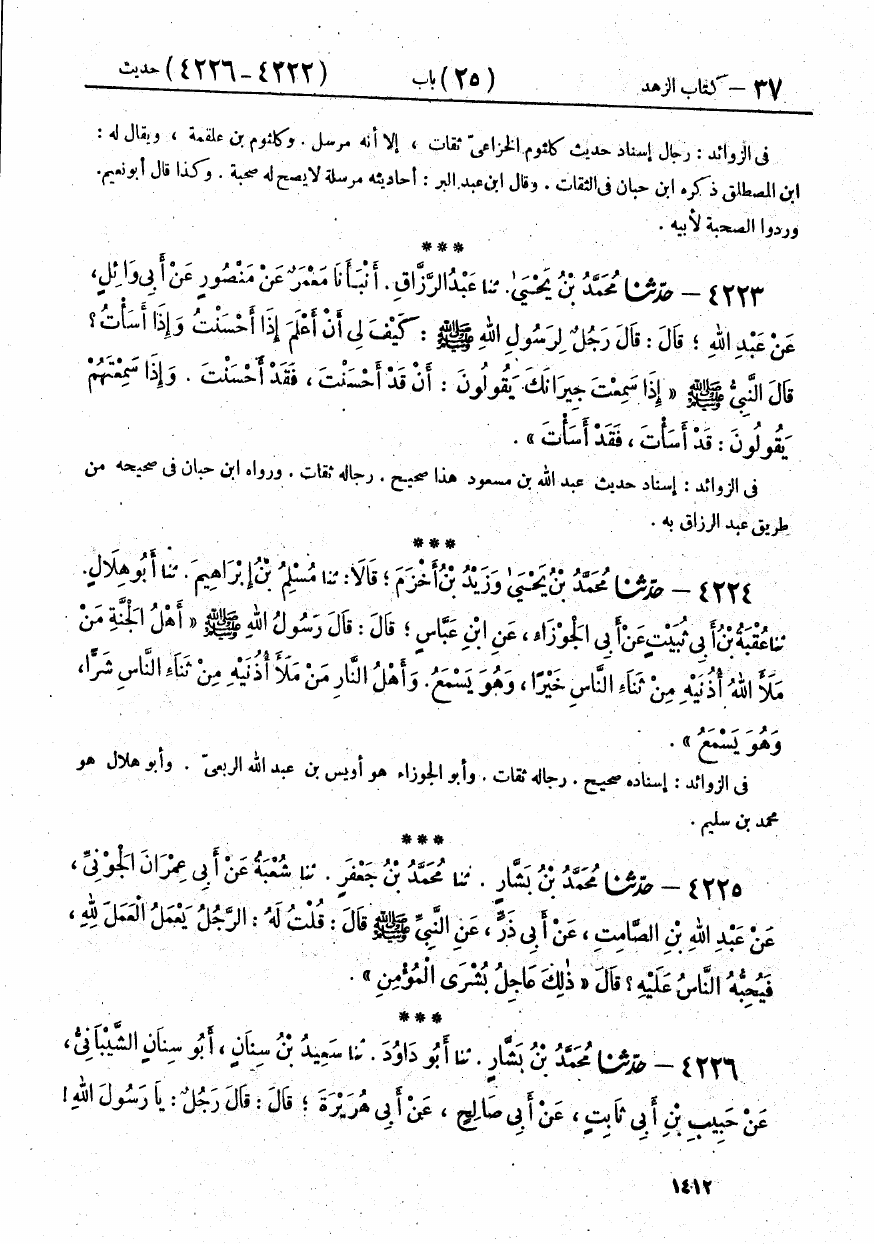 ٣٧ – كتاب الزهد (٢٥) باب (٤٢٢٢ – ٤٢٢٦) حديث
فى الزوائد : رجال إسناد حديث كلثوم الخزاعىّ ثقات ، إلا أنه مرسل . وكلثوم بن علقمة ، ويقال له :
ابن المصطلق ذكره ابن حبان فى الثقات . وقال ابن عبد البر : أحاديثه مرسلة لايصح له صحبة . وكذا قال أبو نعيم.
وردوا الصحبة لأبيه .
***
٤٢٢٣ – حدّثنا مُحَمَّدُ بْنُ يَحْيَىٰ. ثنا عَبْدُ الرَّزَّاقِ. أَنْبَأَنَا مَعْمَرٌ عَنْ مَنْصُورٍ عَنْ أَبِى وَائِلٍ،
عَنْ عَبْدِ اللهِ ؛ قَالَ : قَالَ رَجُلٌ لِرَسُولِ اللهِ ﷺ : كَيْفَ لِى أَنْ أَعْلَمَ إِذَا أَحْسَنْتُ وَإِذَا أَسَأْتُ ؟
قَالَ النَّبِىُّ ﷺ « إِذَا سَمِعْتَ جِيرَانَكَ يَقُولُونَ : أَنْ قَدْ أَحْسَنْتَ ، فَقَدْ أَحْسَنْتَ . وَإِذَا سَمِعْتَهُمْ
يَقُولُونَ : قَدْ أَسَأْتَ ، فَقَدْ أَسَأْتَ » .
فى الزوائد : إسناد حديث عبد الله بن مسعود هذا صحيح . رجاله ثقات . ورواه ابن حبان فى صحيحه من
طريق عبد الرزاق به .
***
٤٢٢٤ – حدّثنا مُحَمَّدُ بْنُ يَحْيَىٰ وَزَيْدُ بْنُ أَخْزَمَ ؛ قَالَا: ثنا مُسْلِمُ بْنُ إِبْرَاهِيمَ . ثنا أَبُو هِلَالٍ.
ثنا عُقْبَةُ بْنُ أَبِى ثُبَيْتٍ عَنْ أَبِى الْجَوْزَاءِ ، عَنِ ابْنِ عَبَّاسٍ ؛ قَالَ : قَالَ رَسُولُ اللهِ ﷺ « أَهْلُ الْجَنَّةِ مَنْ
مَلَأَ اللهُ أُذُنَيْهِ مِنْ ثَنَاءِ النَّاسِ خَيْرًا ، وَهُوَ يَسْمَعُ. وَأَهْلُ النَّارِ مَنْ مَلَأَ أُذُنَيْهِ مِنْ ثَنَاءِ النَّاسِ شَرًّا،
وَهُوَ يَسْمَعُ » .
فى الزوائد : إسناده صحيح . رجاله ثقات . وأبو الجوزاء هو أويس بن عبد الله الربعىّ . وأبو هلال هو
محمد بن سليم .
***
٤٢٢٥ – حدّثنا مُحَمَّدُ بْنُ بَشَّارٍ . ثنا مُحَمَّدُ بْنُ جَعْفَرٍ . ثنا شُعْبَةُ عَنْ أَبِى عِمْرَانَ الْجَوْنِىِّ ،
عَنْ عَبْدِ اللهِ بْنِ الصَّامِتِ ، عَنْ أَبِى ذَرٍّ ، عَنِ النَّبِىِّ ﷺ قَالَ : قُلْتُ لَهُ : الرَّجُلُ يَعْمَلُ الْعَمَلَ لِلهِ ،
فَيُحِبُّهُ النَّاسُ عَلَيْهِ ؟ قَالَ « ذٰلِكَ عَاجِلُ بُشْرَى الْمُؤْمِنِ » .
***
٤٢٢٦ – حدّثنا مُحَمَّدُ بْنُ بَشَّارٍ . ثنا أَبُو دَاوُدَ . ثنا سَعِيدُ بْنُ سِنَانٍ ، أَبُو سِنَانٍ الشَّيْبَانِىُّ ،
عَنْ حَبِيبِ بْنِ أَبِى ثَابِتٍ ، عَنْ أَبِى صَالِحٍ ، عَنْ أَبِى هُرَيْرَةَ ؛ قَالَ : قَالَ رَجُلٌ : يَا رَسُولَ اللهِ !
١٤١٢